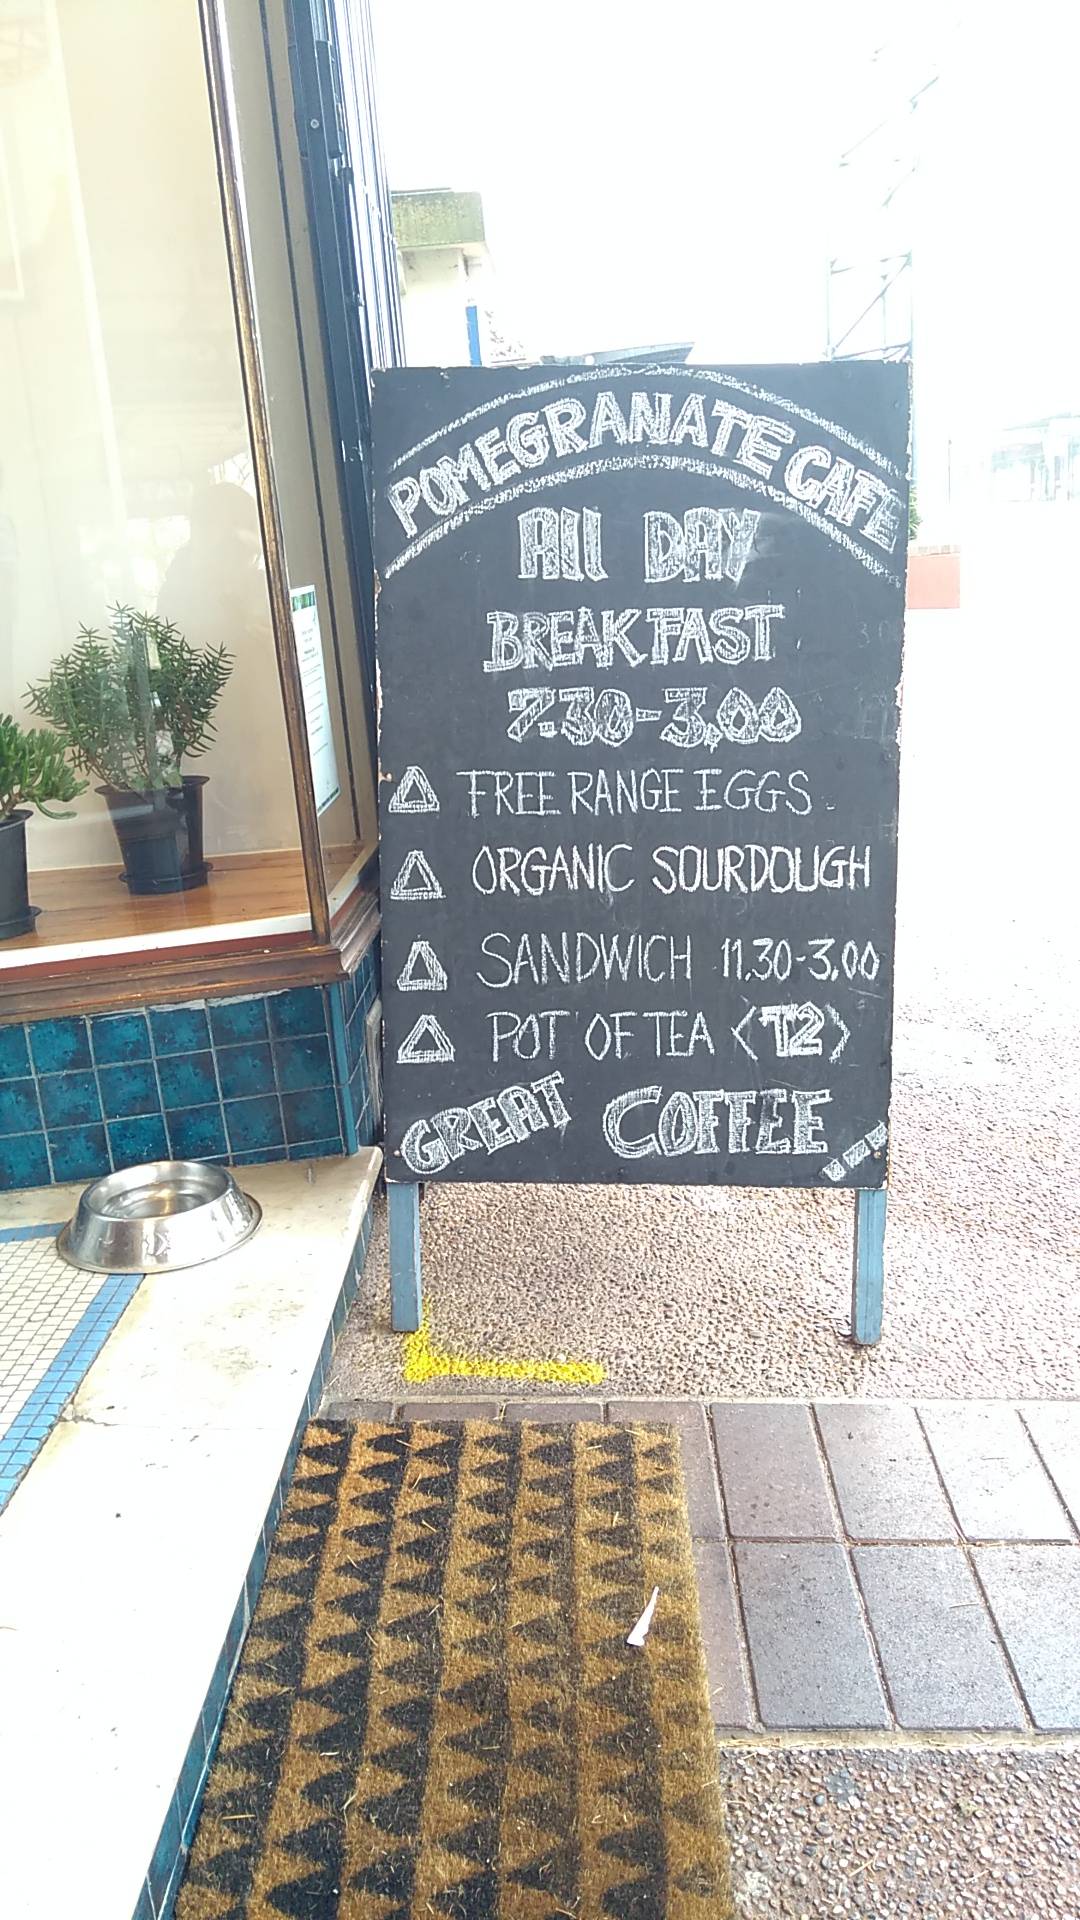 POMEGRANATE CAFE
ALL DAY
BREAKFAST
7.30-3.00
FREE RANGE EGGS
ORGANIC SOURDOUGH
SANDWICH 11.30-3.00
POT OF TEA <T2>
GREAT COFFEE...